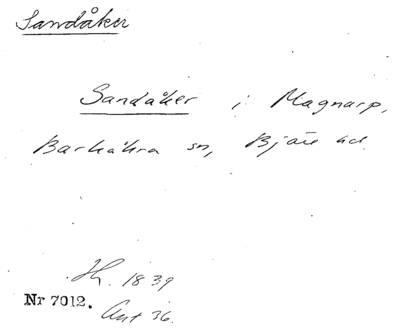 Sandåker
Sandåker i Magnarp,
Barkåkra sn, Bjäre hd
H. 1839
Nr 7012.
Ant 36.